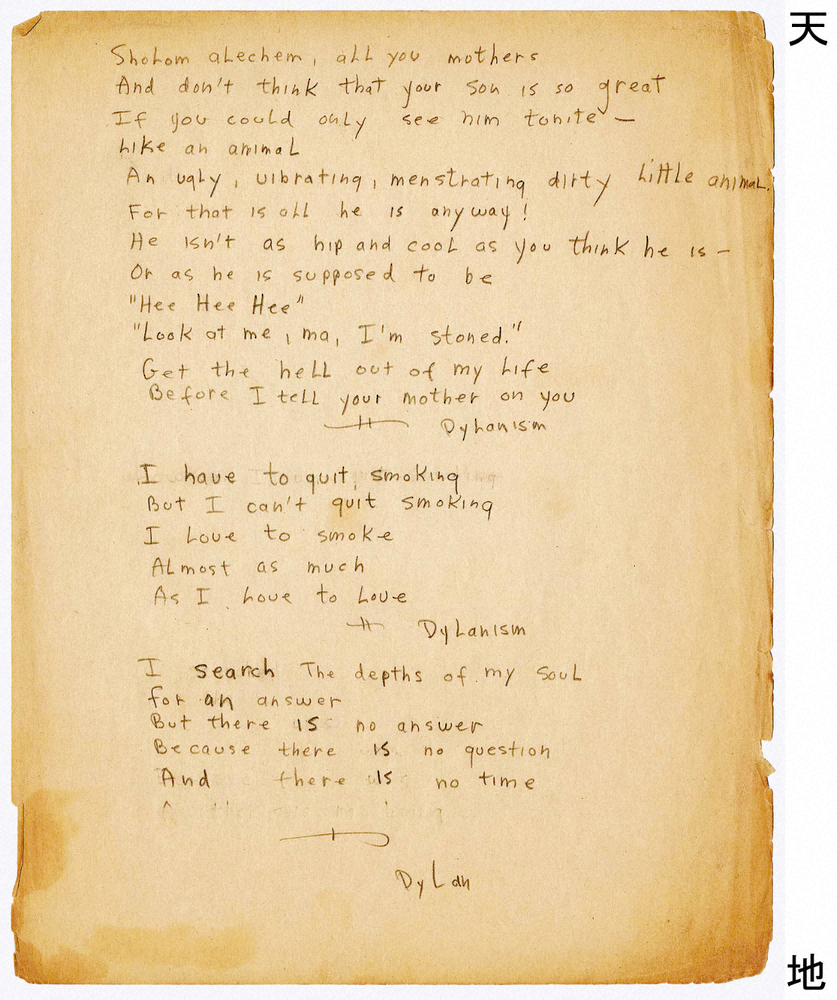 天
Sholom aLechem, all you mothers
And don't think that your son is so great
If you could only see him tonite —
Like an animal
An ugly, vibrating, menstrating dirty Little animal.
For that is all he is anyway!
He isn't as hip and cool as you think he is –
Or as he is supposed to be
"Hee Hee Hee"
"Look at me, ma, I'm stoned."
Get the hell out of my Life
Before I tell your mother on you
Dylanism
I have to quit smoking
But I can't quit smoking
I Love to smoke
Almost as much
As I Love to Love
Dylanism
I search The depths of my soul
for an answer
But there is no answer
Because there is no question
And there is no time
Dylan
地